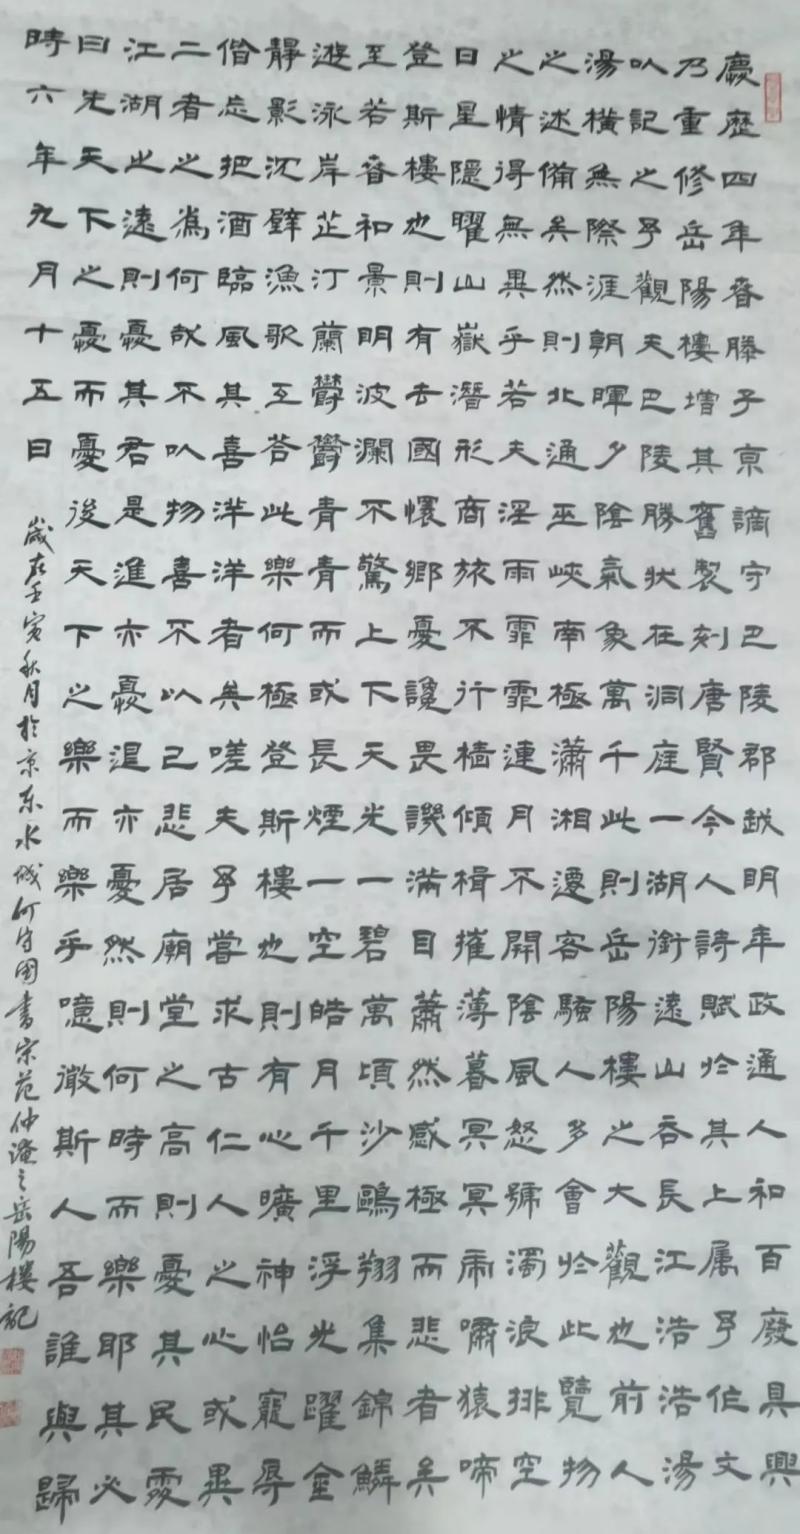 慶歷四年春滕子京謫守巴陵郡越明年政通人和百廢具興
乃重修岳陽樓增其舊製刻唐賢今人詩賦於其上属予作文
以記之予觀夫巴陵勝狀在洞庭一湖銜遠山吞長江浩浩湯
湯橫無際涯朝暉夕陰氣象萬千此則岳陽樓之大觀也前人
之述備矣然則北通巫峽南極瀟湘遷客騷人多會於此覽物
之情得無異乎若夫淫雨霏霏連月不開陰風怒號濁浪排空
日星隱曜山嶽潛形商旅不行檣傾楫摧薄暮冥冥虎嘯猿啼
登斯樓也則有去國懷鄉憂讒畏譏滿目蕭然感極而悲者矣
至若春和景明波瀾不驚上下天光一碧萬頃沙鷗翔集錦鱗
遊泳岸芷汀蘭鬱鬱青青而或長煙一空皓月千里浮光躍金
靜影沉璧漁歌互答此樂何極登斯樓也則有心曠神怡寵辱
偕忘把酒臨風其喜洋洋者矣嗟夫予嘗求古仁人之心或異
二者之為何哉不以物喜不以己悲居廟堂之高則憂其民處
江湖之遠則憂其君是進亦憂退亦憂然則何時而樂耶其必
曰先天下之憂而憂後天下之樂而樂乎噫微斯人吾誰與歸
時六年九月十五日
歲在壬寅秋月於京东水城何国書宋范仲淹之岳陽樓記